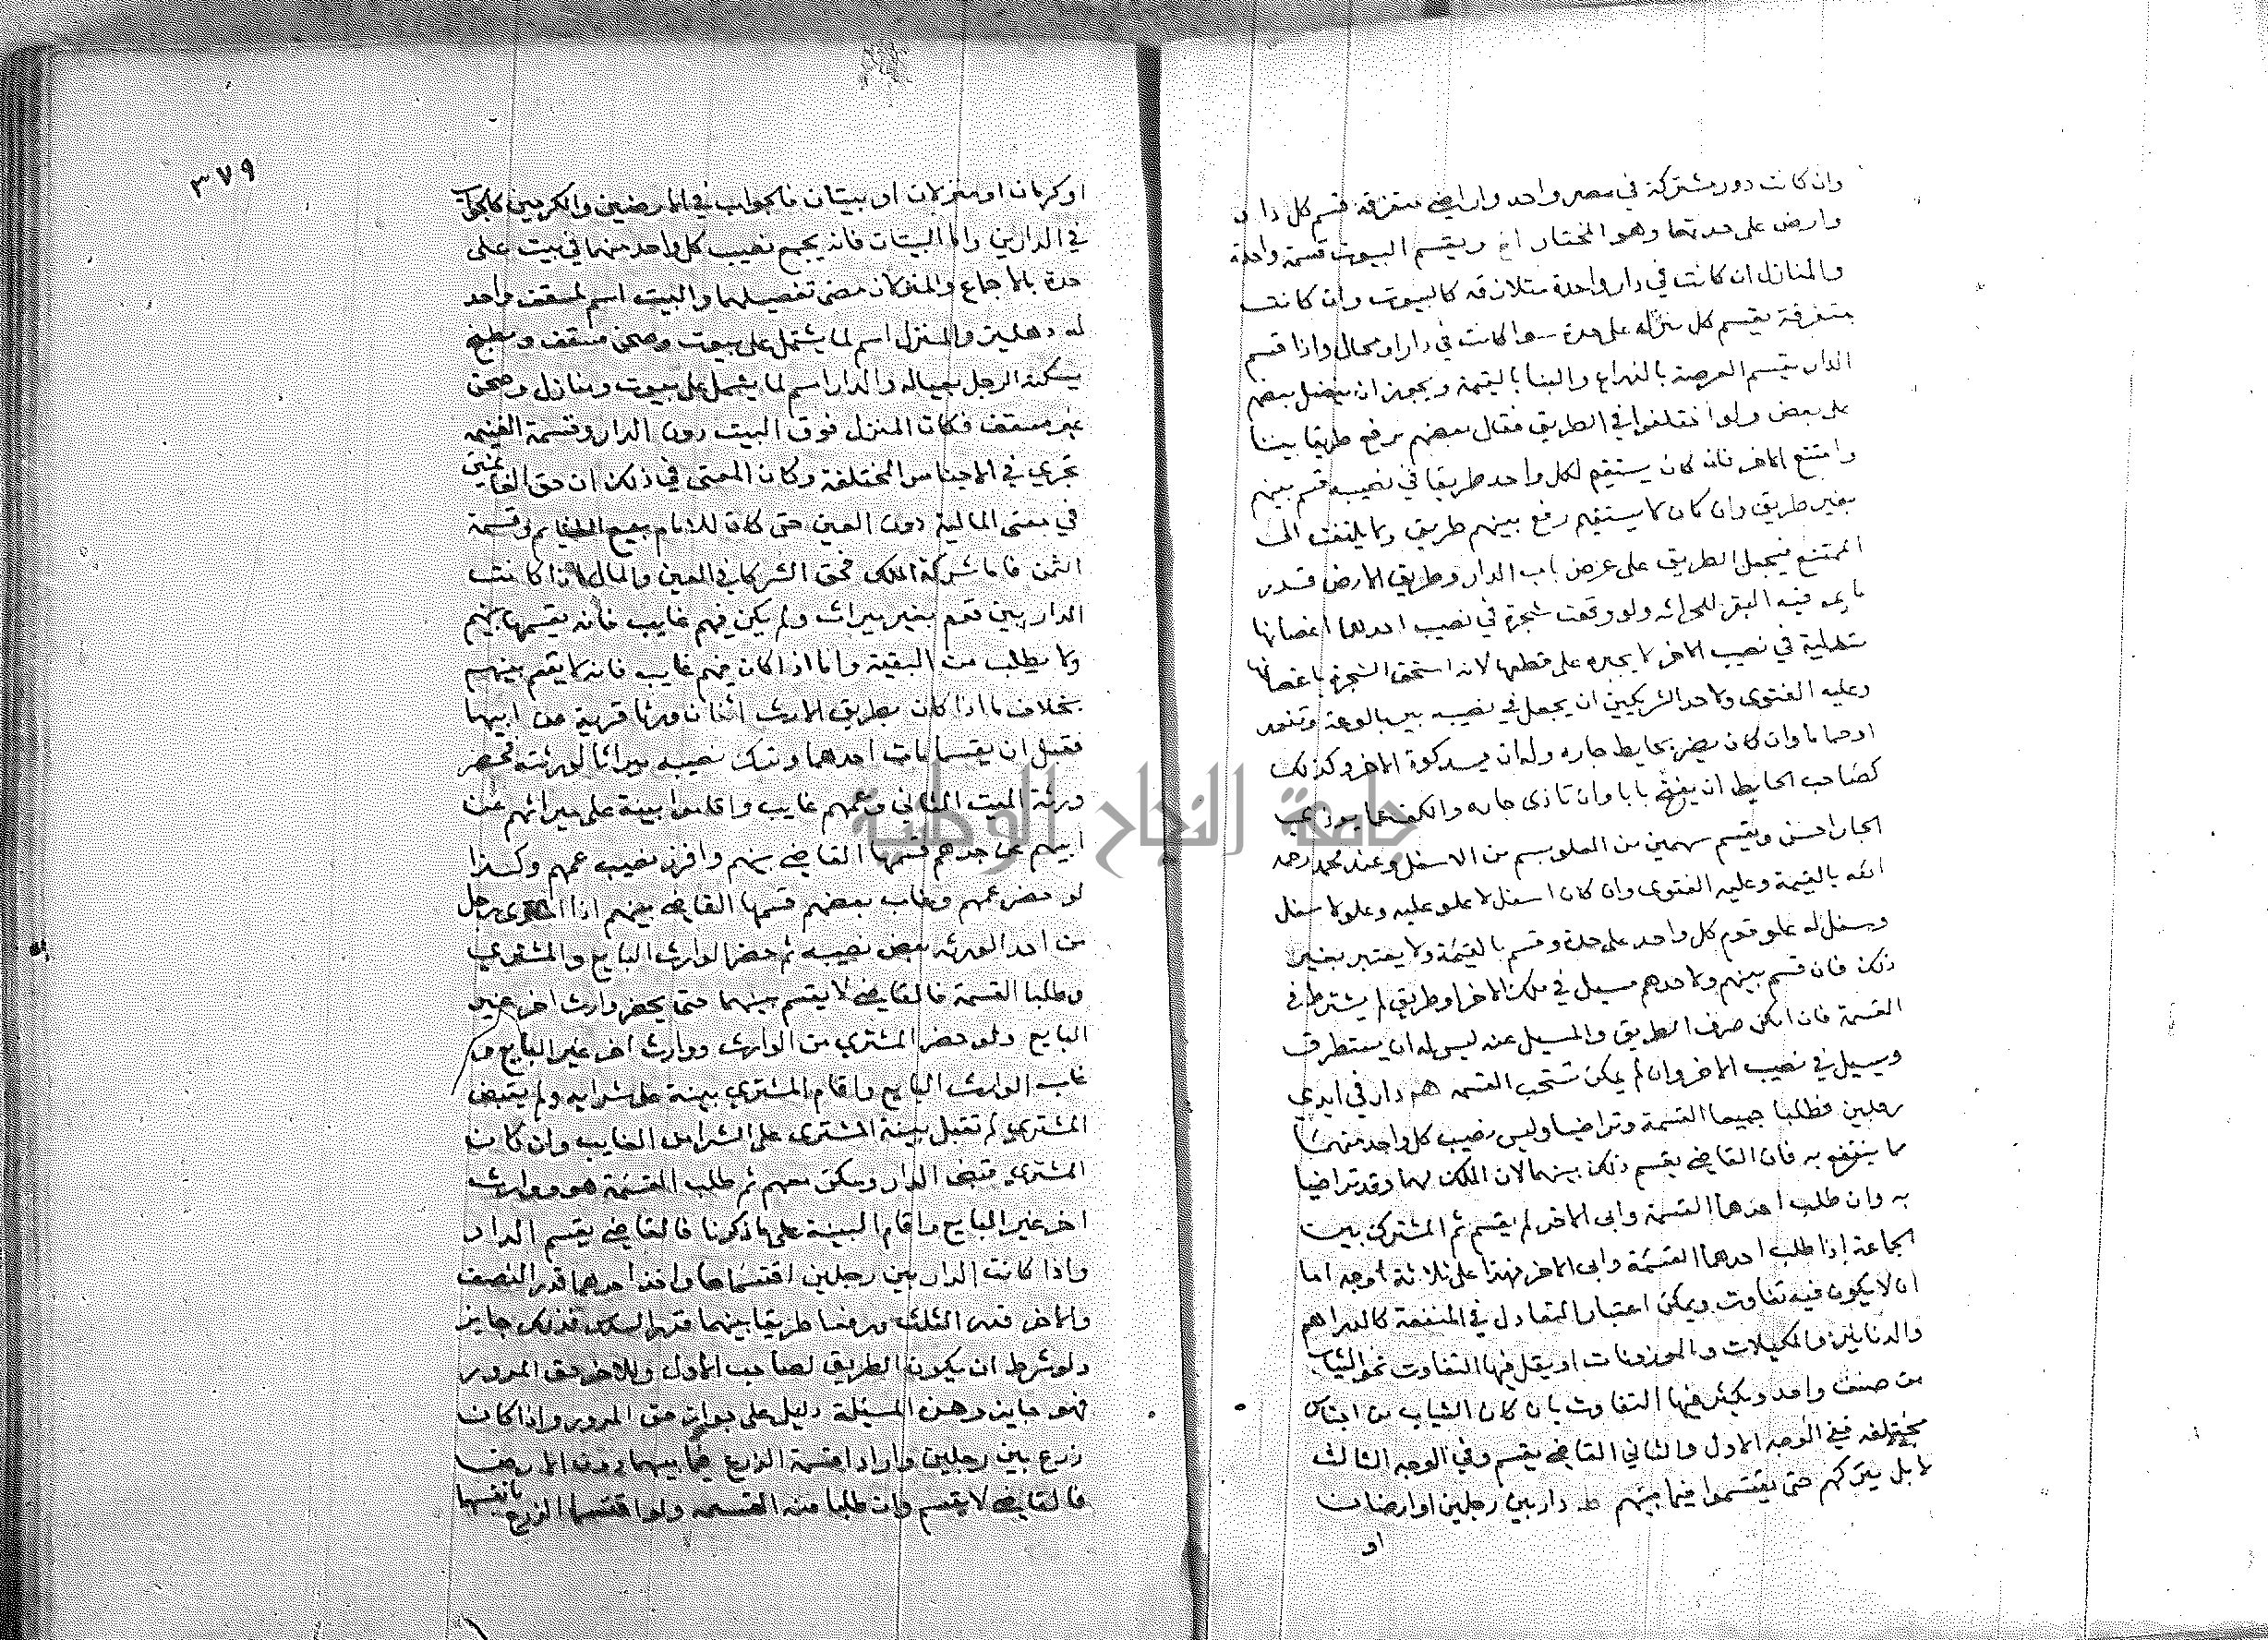 وان كانت دور مشتركة في مصر واحد واراضي متفرقة قسم كل دار
وارض على حدتها وهو المختار ويقسم البيوت قسمة واحدة
والمنازل ان كانت في دار واحدة متلازقه كالبيوت وان كانت
متفرقة يقسم كل منزله على حدة سوا كانت في دار او محال واذا قسم
الدار يقسم العرصة بالذراع والبنا بالقيمة ويجوز ان يفضل بعضهم
على بعض ولو اختلفوا في الطريق فقال بعضهم نرفع طريقا بيننا
وامتنع الاخر فانه كان يستقيم لكل واحد طريقا في نصيبه قسم بينهم
بغير طريق وان كان لا يستقيم رفع بينهم طريق ولا يلتفت الى
الممتنع فيجعل الطريق على عرض باب الدار وطريق الارض قدر
ما يمر فيه البقر للحراثه ولو وقعت شجرة في نصيب احدهما اغصانها
متدلية في نصيب الاخر لا يجبره على قطعها لانه استحق الشجرة باغصانها
وعليه الفتوى ولاحد الشريكين ان يجعل في نصيبه بير بالوعة وتنور
او حماما وان كان يضر بحايط جاره وله ان يسد كوة الاخر وكذلك
لصاحب الحايط ان يفتح بابا وان تاذى جاره والكف عما يوذي
الجار احسن ويقسم سهمين من العلو بسهم من الاسفل وعند محمد رحمه
الله بالقيمة وعليه الفتوى وان كان اسفل لا علو عليه وعلو لا سفل
وسفل له علو قوم كل واحد على حدة وقسم بالقيمة ولا يعتبر بغير
ذلك فان قسم بينهم ولاحدهم مسيل في ملك الاخر او طريق لم يشترط في
القسمة فان امكن صرف الطريق والمسيل عنه ليس له ان يستطرق
ويسيل في نصيب الاخر وان لم يمكن تستحب القسمه دار في ايدي
رجلين فطلبا جميعا القسمة وتراضيا وليس نصيب كل واحد منهما
مما ينتفع به فان القاضي يقسم ذلك بينهما لان الملك لهما وقد تراضيا
به وان طلب احدهما القسمة وابى الاخر لم يقسم ثم المشترك بين
الجماعة اذا طلب احدهما القسمة وابى الاخر فهذا على ثلاثة اوجه اما
ان لا يكون فيه تفاوت ويمكن اعتبار التعادل في المنفعة كالدراهم
والدنانير والمكيلات والموزونات او يقل فيها التفاوت نحو الثياب
من صنف واحد ويكثر فيها التفاوت بان كان الثياب من اجناس
مختلفه ففي الوجه الاول والثاني القاضي يقسم وفي الوجه الثالث
لا بل يتركهم حتى يقتسموا فيما بينهم دار بين رجلين او ارضان
او
٣٧٩
او كرمان او منزلان او بيتان فالجواب في الارضين والكرمين كالجواب
في الدارين واما البيتان فانه يجمع نصيب كل واحد منهما في بيت على
حدة بالاجماع والمنزلان مضى تفصيلهما والبيت اسم لمسقف واحد
له دهليز والمنزل اسم لما يشتمل على بيوت وصحن مسقف ومطبخ
يسكنه الرجل بعياله والدار اسم لما يشتمل على بيوت ومنازل وصحن
غير مسقف فكان المنزل فوق البيت دون الدار وقسمة الغنيمه
تجري في الاجناس المختلفة وكان المعنى في ذلك ان حق الغانمين
في معنى المالية دون العين حتى كان للامام بيع الغنايم وقسمة
الثمن فاما شركة الملك فحق الشركا في العين والمال اذا كانت
الدار بين قوم بغير ميراث ولم يكن فيهم غايب فانه يقسمها بينهم
ولا يطلب من البقية واما اذا كان فيهم غايب فانه لا يقسم بينهم
بخلاف ما اذا كان بطريق الارث اثنان ورثا قرية من ابيهما
فقبل ان يقتسما مات احدهما وترك نصيبه ميراثا لورثته فحضر
ورثة الميت الثاني وعمهم غايب واقاموا بينة على ميراثهم عن
ابيهم عن جدهم قسمها القاضي بينهم وافرز نصيب عمهم وكذا
لو حضر عمهم وغاب بعضهم قسمها القاضي بينهم اذا اشترى رجل
من احد الورثه بعض نصيبه ثم حضر الوارث البايع والمشتري
وطلبا القسمة فالقاضي لا يقسم بينهما حتى يحضر وارث اخر غير
البايع ولو حضر المشتري من الوارث ووارث اخر غير البايع و
غاب الوارث البايع واقام المشتري بينة على شرايه ولم يقبض
المشتري لم تقبل بينة المشترى على الشرا من الغايب وان كان
المشتري قبض الدار وسكن معهم ثم طلب القسمة هو ووارث
اخر غير البايع واقام البينة على ما ذكرنا فالقاضي يقسم الدار
واذا كانت الدار بين رجلين اقتسماها واخذ احدهما قدر النصف
والاخر قدر الثلث ورفعا طريقا بينهما قدر السدس فذلك جايز
ولو شرط ان يكون الطريق لصاحب الاول وللاخر حق المرور
فهو جايز وهذه المسئلة دليل على جواز حق المرور واذا كان
زرع بين رجلين وارادا قسمة الزرع فيما بينهما دون الارض
فالقاضي لا يقسم وان طلبا منه القسمه ولو اقتسما الزرع بانفسهما
جامعة النجاح الوطنية